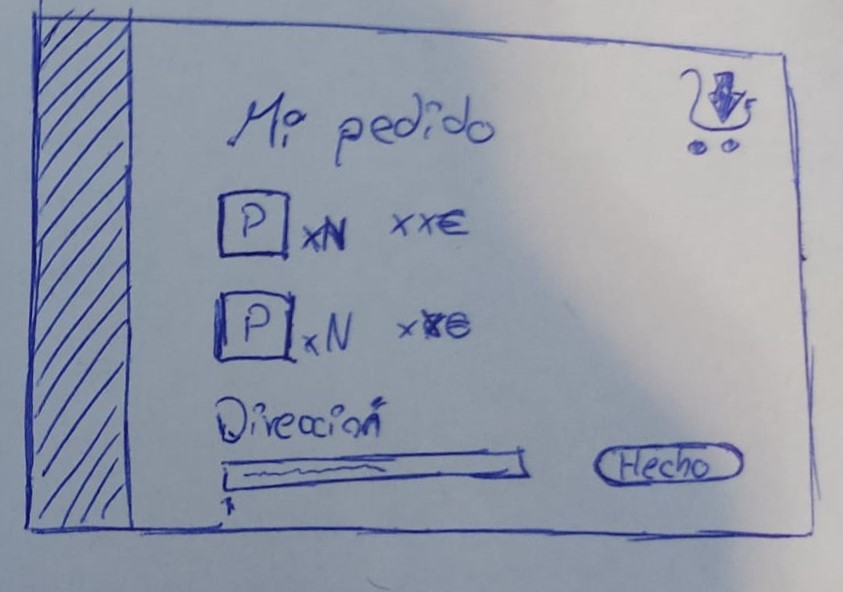 Mi pedido
P xN xx€
P xN xx€
Dirección
Hecho